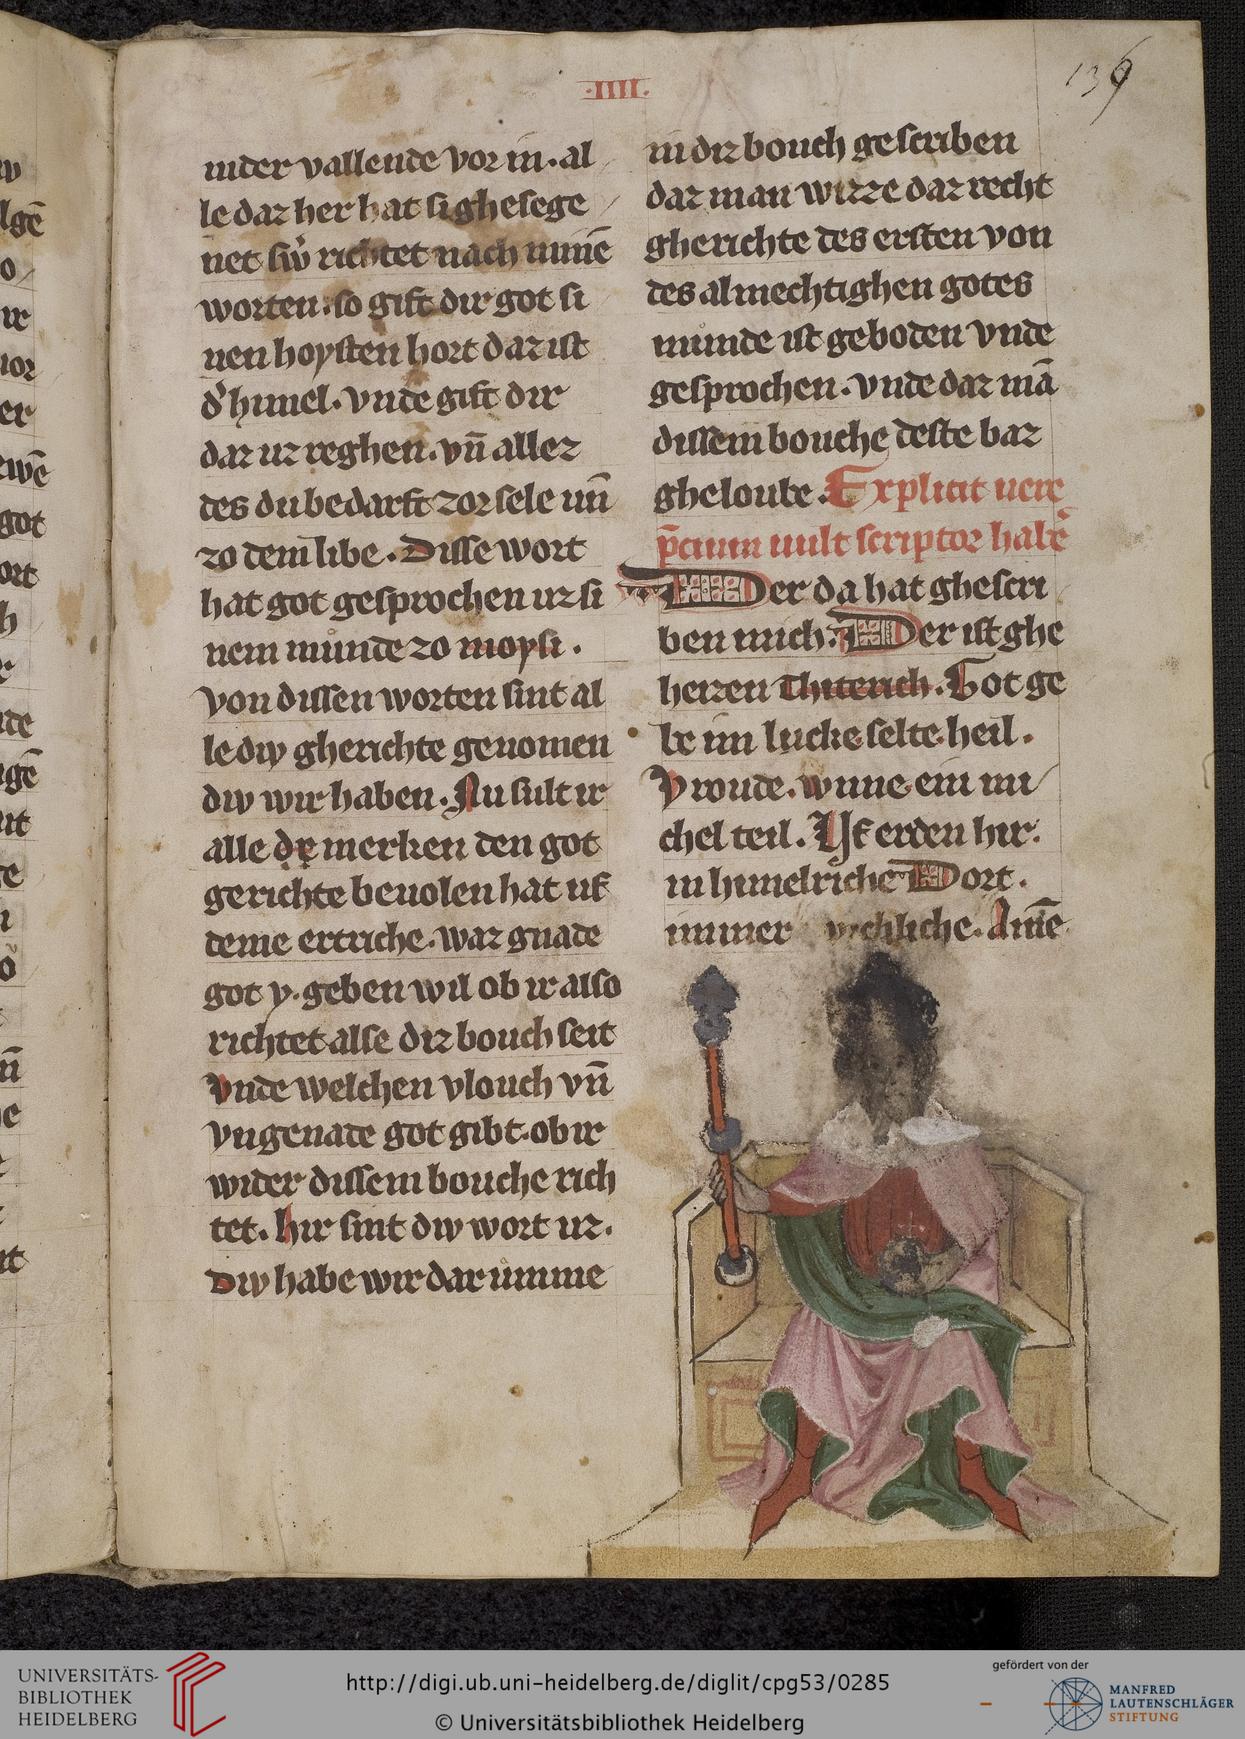 ·IIII·
139
nider vallende vor in. al
le daz her hat si ghesege
net sw' richtet nach minē
worten. so gift dir got si
nen hoysten hort daz ist
d' himel. vnde gift dir
dar uz reghen. vn̄ allez
des du bedarft zor sele un̄
zo dem libe. Disse wort
hat got gesprochen uz si
nem munde zo moysi.
von dissen worten sint al
le diw gherichte genomen
diw wir haben. Nu sult ir
alle merken den got
gerichte beuolen hat uf
deme ertriche. waz gnade
got y. geben wil ob ir also
richtet alse diz bouch seit
Vnde welchen vlouch vn̄
vngenade got gibt. ob ir
wider dissem bouche rich
tet. hir sint diw wort uz.
Diw habe wir dar umme
in diz bouch gescriben
daz man wizze daz recht
gherichte des ersten von
des almechtighen gotes
munde ist geboden vnde
gesprochen. vnde daz mā
dissem bouche deste baz
gheloube. Explicit uere
p̄cium uult scriptor habē
Der da hat ghescri
ben mich. Der ist ghe
heizen Thiterich. Got ge
be im lucke selte heil.
Vroude. wnne ein mi
chel teil. Vf erden hir.
in himelriche Dort.
immer liche. Amē
UNIVERSITÄTS-
BIBLIOTHEK
HEIDELBERG
http://digi.ub.uni-heidelberg.de/diglit/cpg53/0285
© Universitätsbibliothek Heidelberg
gefördert von der
MANFRED
LAUTENSCHLÄGER
STIFTUNG